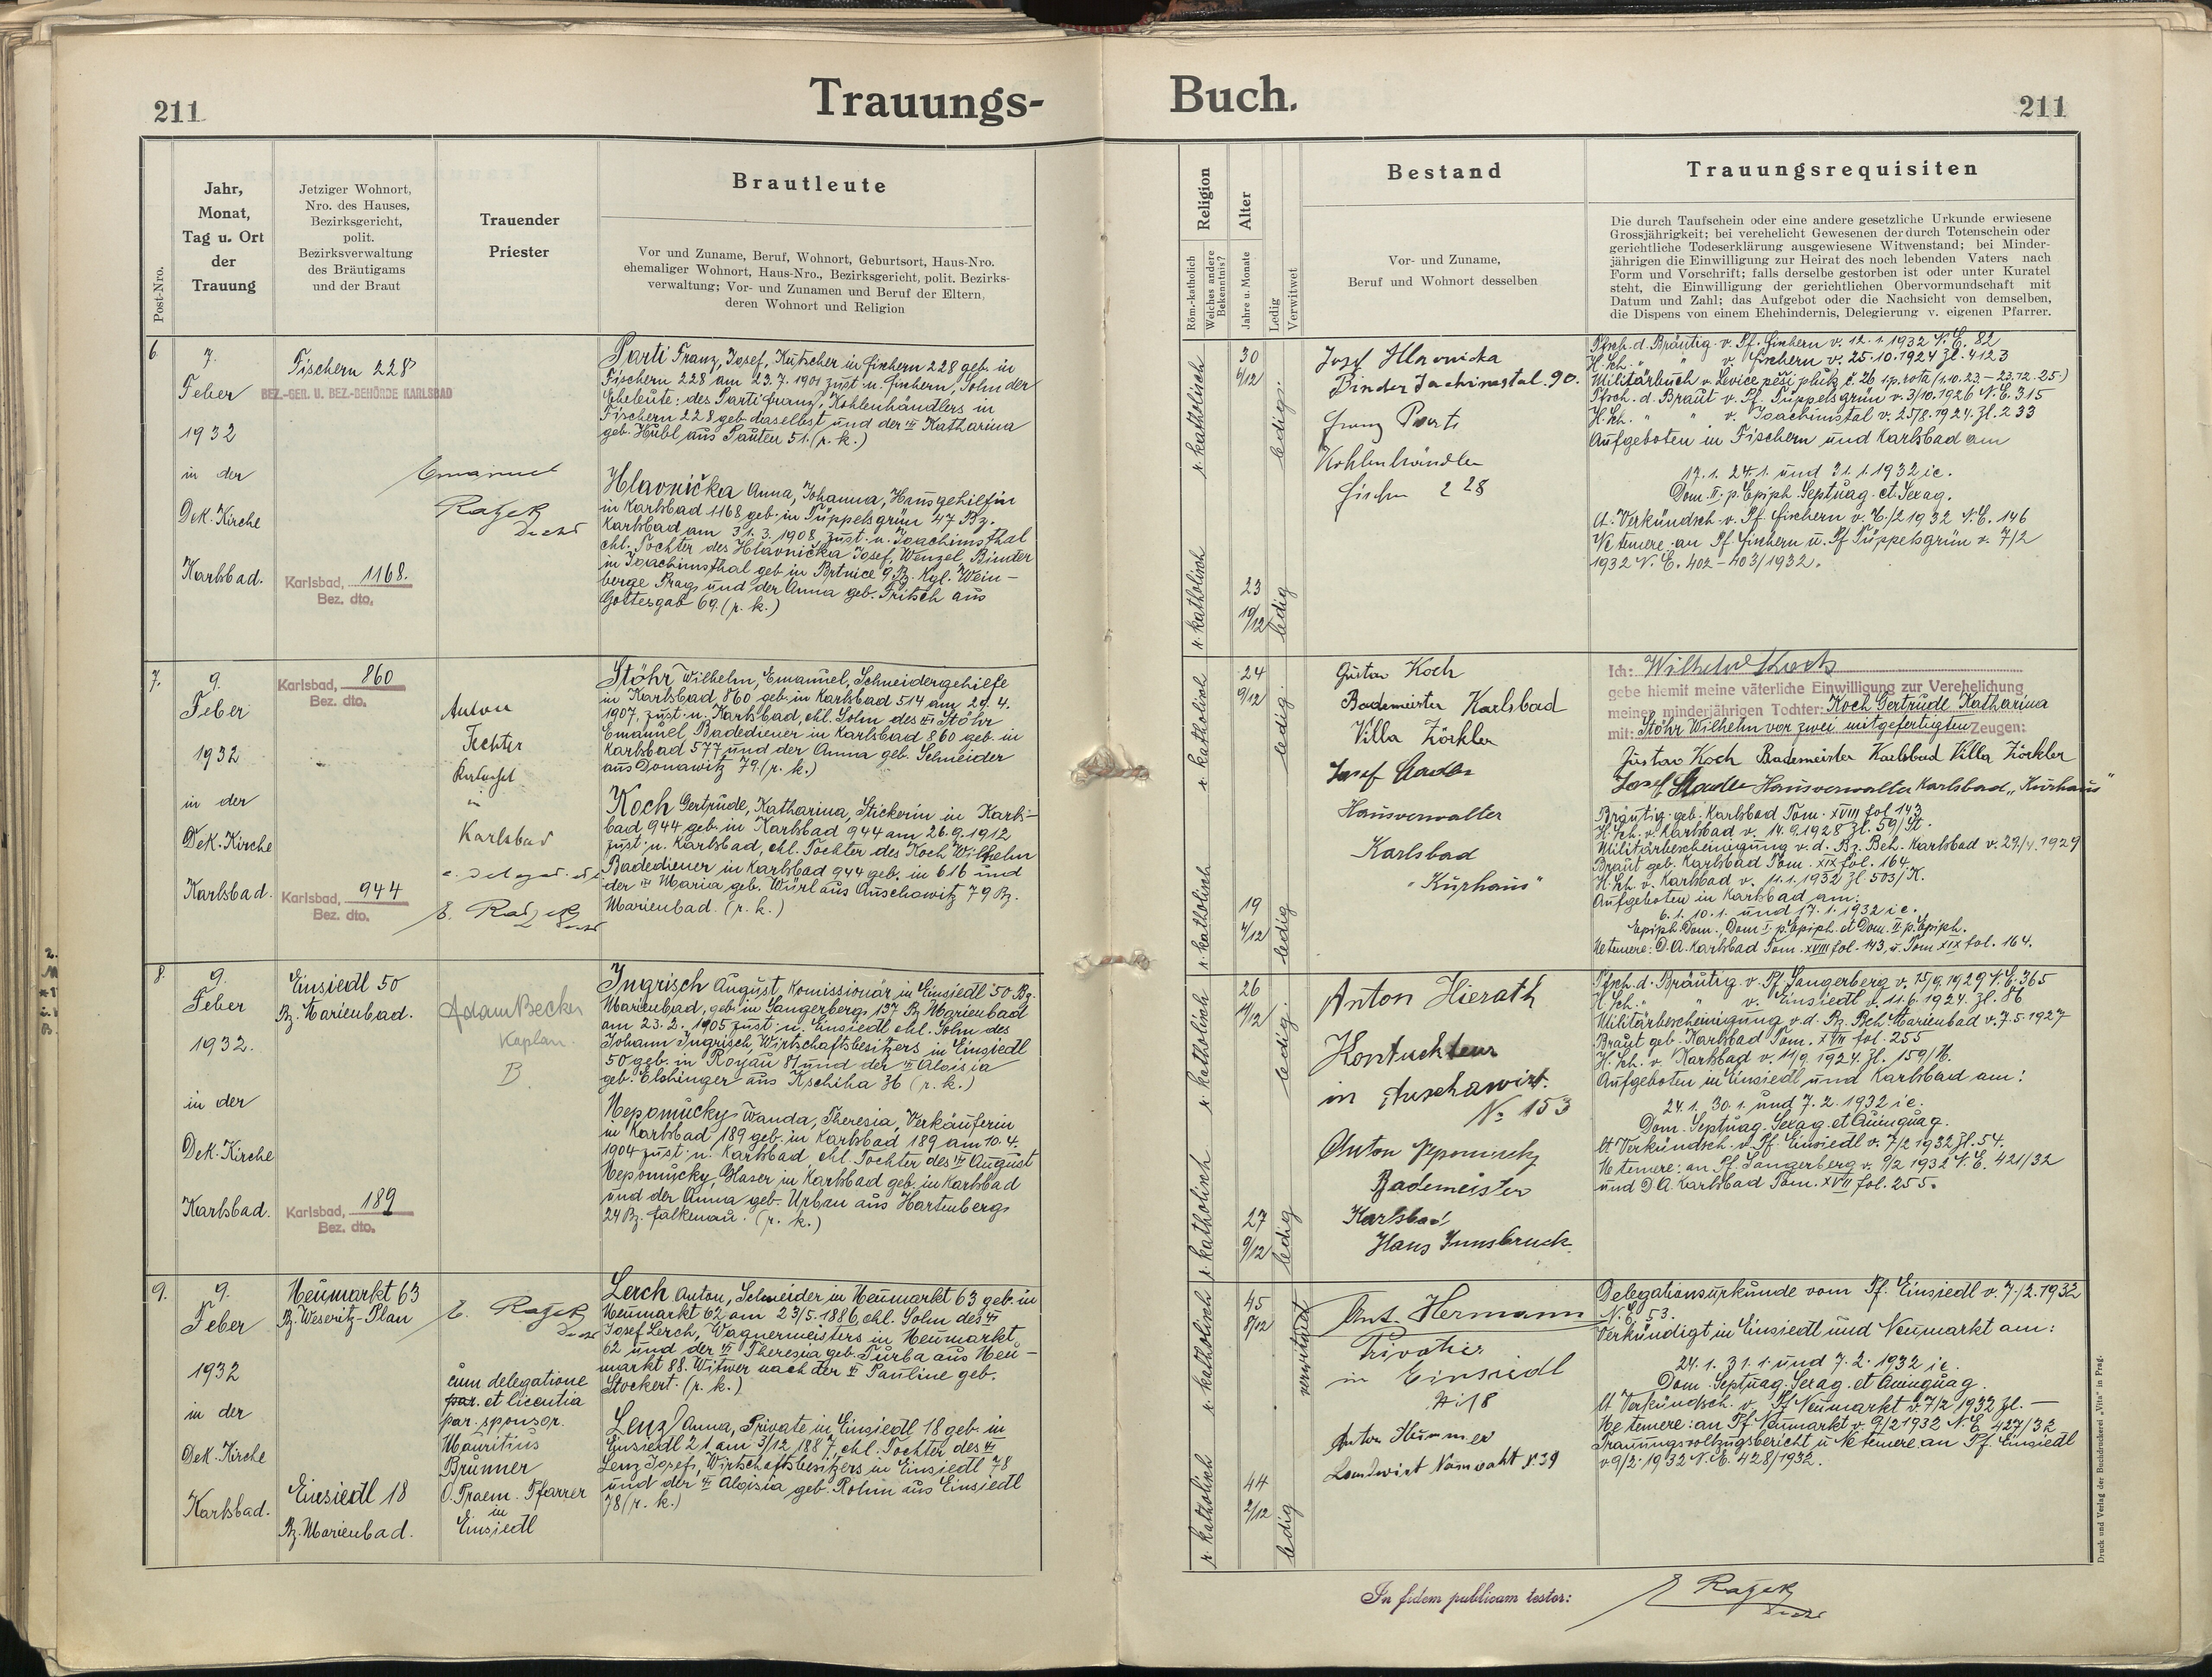 211
Trauungs-
Buch.
211
Post-Nro.
Jahr,
Monat,
Tag u. Ort
der
Trauung
Jetziger Wohnort,
Nro. des Hauses,
Bezirksgericht,
polit.
Bezirksverwaltung
des Bräutigams
und der Braut
Trauender
Priester
Brautleute
Vor und Zuname, Beruf, Wohnort, Geburtsort, Haus-Nro.
ehemaliger Wohnort, Haus-Nro., Bezirksgericht, polit. Bezirks-
verwaltung; Vor- und Zunamen und Beruf der Eltern,
deren Wohnort und Religion
Religion
Röm.-katholisch
Welches andere
Bekenntnis?
Alter
Jahre u. Monate
Ledig
Verwitwet
Bestand
Vor- und Zuname,
Beruf und Wohnort desselben
Trauungsrequisiten
Die durch Taufschein oder eine andere gesetzliche Urkunde erwiesene
Grossjährigkeit; bei verehelicht Gewesenen der durch Totenschein oder
gerichtliche Todeserklärung ausgewiesene Witwenstand; bei Minder-
jährigen die Einwilligung zur Heirat des noch lebenden Vaters nach
Form und Vorschrift; falls derselbe gestorben ist oder unter Kuratel
steht, die Einwilligung der gerichtlichen Obervormundschaft mit
Datum und Zahl; das Aufgebot oder die Nachsicht von demselben,
die Dispens von einem Ehehindernis, Delegierung v. eigenen Pfarrer.
6.
7.
Feber
1932
in der
Dek. Kirche
Karlsbad.
Fischern 228
BEZ.-GER. U. BEZ.-BEHÖRDE KARLSBAD
Karlsbad, 1168.
Bez. dto.
Emanuel
Ražek
Decht
Parti Franz, Josef, Kutscher in Fischern 228 geb. in
Fischern 228 am 23.7.1901 zust. n. Fischern, Sohn der
Eheleute: des Parti Franz, Kohlenhändlers in
Fischern 228 geb. daselbst und der Katharina
geb. Hübl aus Sauten 51. (r. k.)
Hlavnička Anna, Johanna, Hausgehilfin
in Karlsbad 1168 geb. in Tüppelsgrün 47 Bz.
Karlsbad am 31.3.1908, zust. n. Joachimsthal
ehl. Tochter des Hlavnička Josef, Wenzel, Binder
in Joachimsthal geb. in Brtnice 9 Bz. Kgl. Wein-
berge Prag und der Anna geb. Fritsch aus
Gottesgab 69. (r. k.)
r. katholisch
30
6/12
ledig.
r. katholisch
23
10/12
ledig
Josef Hlavnicka
Binder Joachimstal. 90.
Franz Parti
Kohlenhändler
Fischern 228
Pfsch. d. Bräutig. v. Pf. Fischern v. 12.1.1932 N.E. 82
H. Sch. " " v. Fischern v. 25.10.1924 Zl. 4123
Militärbuch v. Levice pěší pluk č. 26 1.p. rota (1.10.23.-23.12.25.)
Pfsch. d. Braut v. Pf. Tüppelsgrün v. 3/10.1926 N.E. 315
H. Sch. " " v. Joachimstal v. 25/8.1924. Zl. 233
Aufgeboten in Fischern und Karlsbad am
17.1. 24.1. und 31.1.1932 ie.
Dom. II. p. Epiph. Septuag. et Sexag.
lt. Verkündsch. v. Pf. Fischern v. 6./2 1932 N.E. 146
Ne temere an Pf. Fischern u. Pf. Tüppelsgrün v. 7/2
1932 N.E. 402-403/1932.
7.
9.
Feber
1932
in der
Dek. Kirche
Karlsbad.
Karlsbad, 860
Bez. dto.
Karlsbad, 944
Bez. dto.
Anton
Fechter
in
Karlsbad
E. Ražek
Decht
Stöhr Wilhelm, Emanuel, Schneidergehilfe
in Karlsbad 860 geb. in Karlsbad 514 am 29.4.
1907, zust. n. Karlsbad, ehl. Sohn des Stöhr
Emanuel, Badediener in Karlsbad 860 geb. in
Karlsbad 577 und der Anna geb. Schneider
aus Donawitz 79. (r. k.)
Koch Gertrude, Katharina, Stickerin in Karls-
bad 944 geb. in Karlsbad 944 am 26.9.1912
zust. n. Karlsbad, ehl. Tochter des Koch Wilhelm
Badediener in Karlsbad 944 geb. in 616 und
der Maria geb. Würl aus Auschowitz 79 Bz.
Marienbad. (r. k.)
r. katholisch
24
9/12
ledig.
r. katholisch
19
4/12
ledig
Gustav Koch
Bademeister Karlsbad
Villa Zörkler
Josef Stadler
Hausverwalter
Karlsbad
"Kurhaus"
Ich: Wilhelm Koch
gebe hiemit meine väterliche Einwilligung zur Verehelichung
meiner minderjährigen Tochter: Koch Gertrude Katharina
mit: Stöhr Wilhelm vor zwei mitgefertigten Zeugen:
Gustav Koch Bademeister Karlsbad Villa Zörkler
Josef Stadler Hausverwalter Karlsbad „Kurhaus"
Bräutig. geb. Karlsbad Tom. XVIII fol. 143
H. Sch. v. Karlsbad v. 14.9.1928 Zl. 59/St.
Militärbescheinigung v. d. Bz. Beh. Karlsbad v. 29/4.1929
Braut geb. Karlsbad Tom. XIX fol. 164.
H. Sch. v. Karlsbad v. 11.1.1932 Zl. 503/K.
Aufgeboten in Karlsbad am:
6.1. 10.1. und 17.1.1932 ie.
Epiph. Dom., Dom. I. p. Epiph. et Dom. II. p. Epiph.
Ne temere: D.A. Karlsbad Tom. XVIII fol. 143, u. Tom XIX fol. 164.
8.
9.
Feber
1932.
in der
Dek. Kirche
Karlsbad.
Einsiedl 50
Bz. Marienbad.
Karlsbad, 189
Bez. dto.
Adam Becker
Kaplan.
B
Ingrisch August, Komissionär in Einsiedl 50 Bz.
Marienbad, geb. in Sangerberg 137 Bz. Marienbad
am 23.2.1905 zust. n. Einsiedl ehl. Sohn des
Johann Ingrisch, Wirtschaftsbesitzers in Einsiedl
50 geb. in Rojau 81 und der Aloisia
geb. Elshinger aus Kschiha 36 (r. k.)
Nepomucky Wanda, Theresia, Verkäuferin
in Karlsbad 189 geb. in Karlsbad 189 am 10.4.
1904 zust. n. Karlsbad ehl. Tochter des August
Nepomucky, Glaser in Karlsbad geb. in Karlsbad
und der Anna geb. Urban aus Hartenberg
24 Bz. Falkenau. (r. k.)
r. katholisch
26
ledig.
r. katholisch
27
9/12
ledig
Anton Hierath
Kontukteur
in Auschawitz.
No 153
Anton Nepomucky
Bademeister
Karlsbad
Haus Innsbruck.
Pfsch. d. Bräutig. v. Pf. Sangerberg v. 15/9.1929 N.E. 365
H. Sch. " " v. Einsiedl v. 11.6.1924. Zl. 86
Militärbescheinigung v. d. Bz. Beh. Marienbad v. 7.5.1927
Braut geb. Karlsbad Tom. XVII fol. 255
H. Sch. v. Karlsbad v. 11/9 1924. Zl. 159/N.
Aufgeboten in Einsiedl und Karlsbad am:
24.1. 30.1. und 7.2.1932 ie.
Dom. Septuag. Sexag. et Quinquag.
lt. Verkündsch. v. Pf. Einsiedl v. 7/2 1932 Zl. 54.
Ne temere: an Pf. Sangerberg v. 9/2 1932 N.E. 421/32
und D.A. Karlsbad Tom. XVII fol. 255.
9.
9.
Feber
1932
in der
Dek. Kirche
Karlsbad.
Neumarkt 63
Bz. Weseritz-Plan
Einsiedl 18
Bz. Marienbad.
E. Ražek
Decht
cum delegatione
par. et licentia
par. sponsor.
Mauritius
Brunner
O. Praem. Pfarrer
in
Einsiedl
Lerch Anton, Schneider in Neumarkt 63 geb. in
Neumarkt 62 am 23/5.1886, ehl. Sohn des
Josef Lerch, Wagnermeisters in Neumarkt
62 und der Theresia geb. Turba aus Neu-
markt 88. Witwer nach der Pauline geb.
Stockert. (r. k.)
Lenz Anna, Private in Einsiedl 18 geb. in
Einsiedl 21 am 3/12 1887, ehl. Tochter des
Lenz Josef, Wirtschaftsbesitzers in Einsiedl 78
und der Aloisia geb. Rohm aus Einsiedl
78 (r. k.)
r. katholisch
45
8/12
verwitwet
r. katholisch
44
2/12
ledig
Ant. Hermann
Privatier
in Einsiedl
N: 18
Anton Hummer
Landwirt N. 39
Delegationsurkunde vom Pf. Einsiedl v. 7./2.1932
N.E. 53.
Verkündigt in Einsiedl und Neumarkt am:
24.1. 31.1. und 7.2.1932 ie.
Dom. Septuag. Sexag. et Quinquag.
lt. Verkündsch. v. Pf. Neumarkt v. 7/2 1932 Zl. —
Ne temere: an Pf. Neumarkt v. 9/2 1932 N.E. 427/32
Trauungsvollzugsbericht u. Ne temere an Pf. Einsiedl
v. 9/2.1932 N.E. 428/1932.
In fidem publicam testor:
E Ražek
Decht
Druck und Verlag der Buchdruckerei „Vita" in Prag.